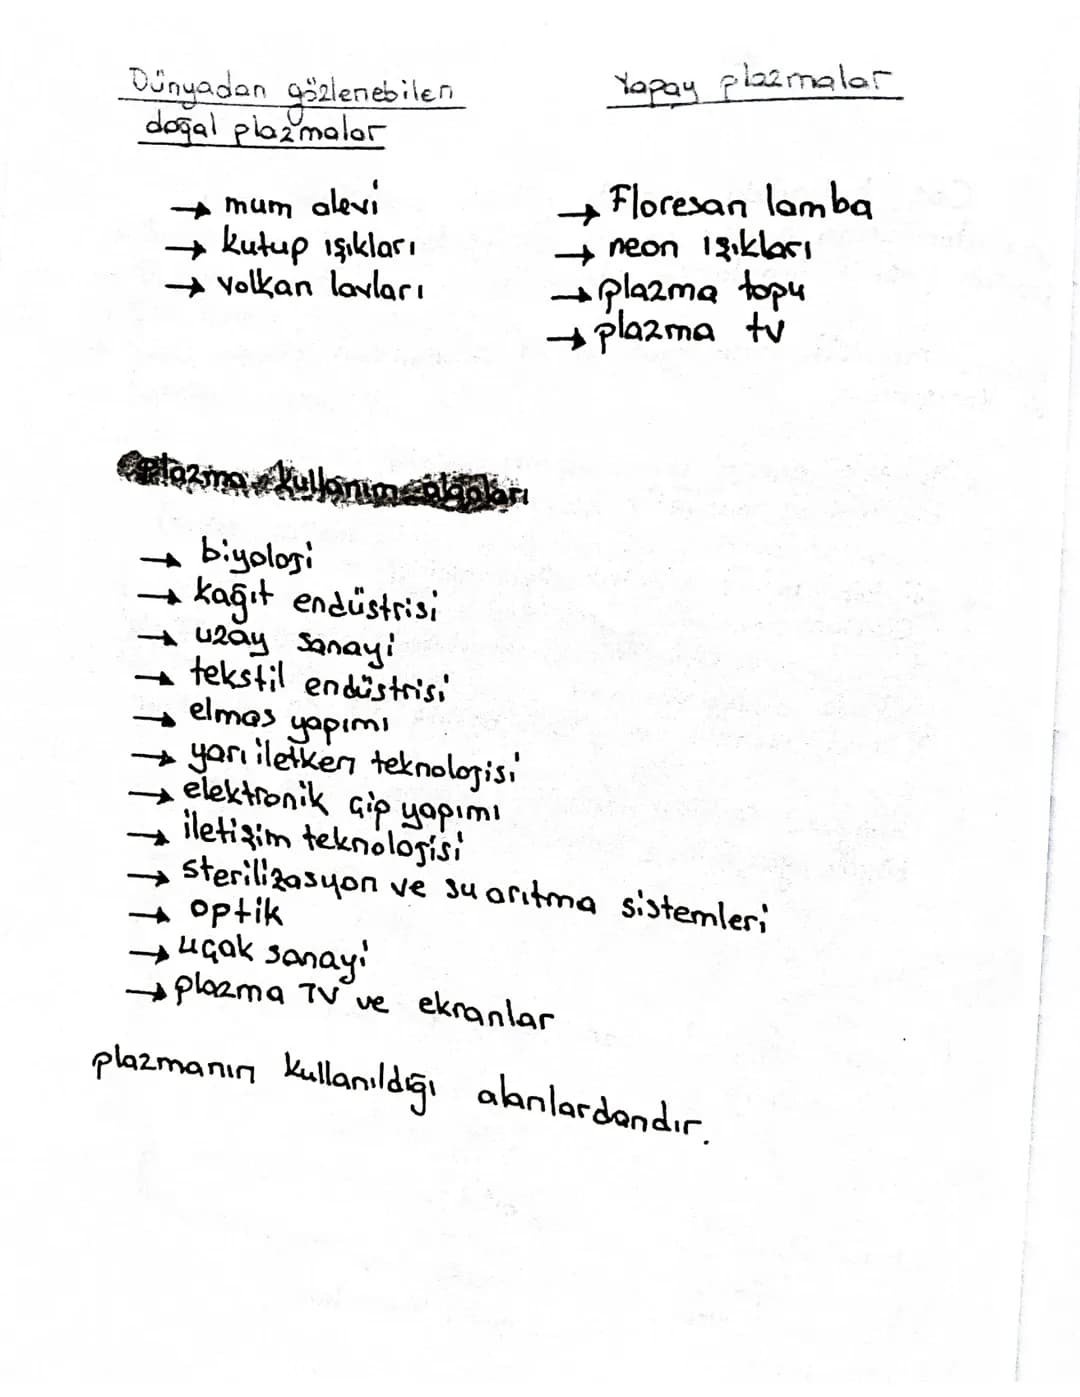 Dünyadan gözlenebilen
doğal plazmalar
→ mum alevi
→ kutup ışıkları
→ volkan lavları
Yapay plazmalar
→ Floresan lamba
→ neon ışıkları
→ plazma topu
→ plazma tv
plazma kullanım alanları
→ biyoloji
→ kağıt endüstrisi
→ uzay sanayi
→ tekstil endüstrisi
→ elmas yapımı
→ yarı iletken teknolojisi
→ elektronik çip yapımı
→ iletişim teknolojisi
→ sterilizasyon ve su arıtma sistemleri
→ optik
→ uçak sanayi
→ plazma TV ve ekranlar
plazmanın kullanıldığı alanlardandır.